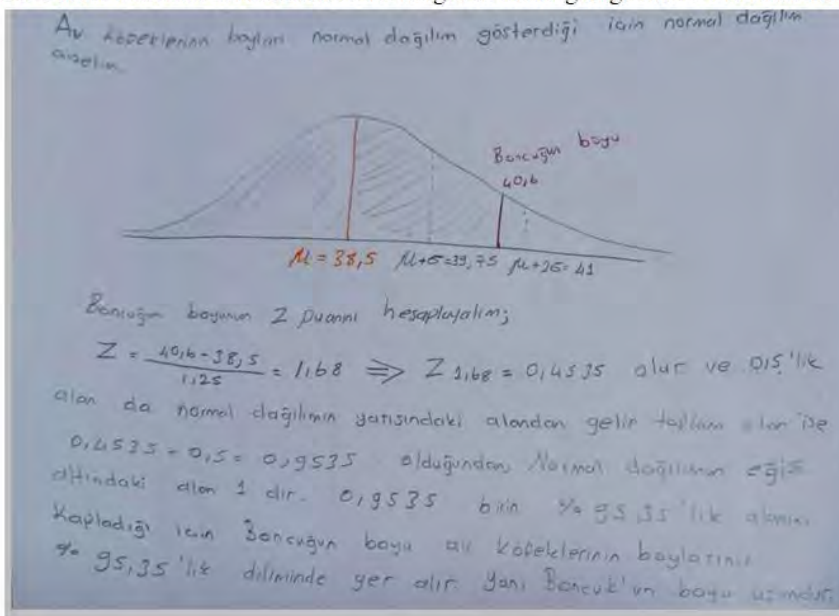 Av köpeklerinin boyları normal dağılım gösterdiği için normal dağılım
çizelim.
Boncuğun boyu
40,6
μ = 38,5 μ+σ=39,75 μ+2σ=41
Boncuğun boyunun Z puanını hesaplayalım;
Z = 40,6-38,5 / 1,25 = 1,68 ⇒ Z 1,68 = 0,4535 olur ve 0,5'lik
alan da normal dağılımın yarısındaki alandan gelir toplam alan ise
0,4535 + 0,5 = 0,9535 olduğundan, Normal dağılımın eğrisi
altındaki alan 1 dir. 0,9535 birin % 95,35'lik alanını
Kapladığı için Boncuğun boyu av köpeklerinin boylarının
% 95,35'lik diliminde yer alır. Yani Boncuk'un boyu uzundur.